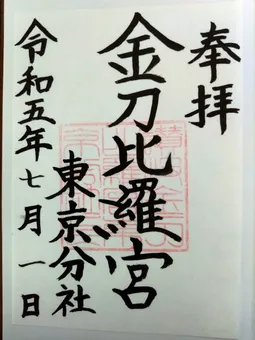 奉拝
金刀比羅宮
東京分社
令和五年七月一日